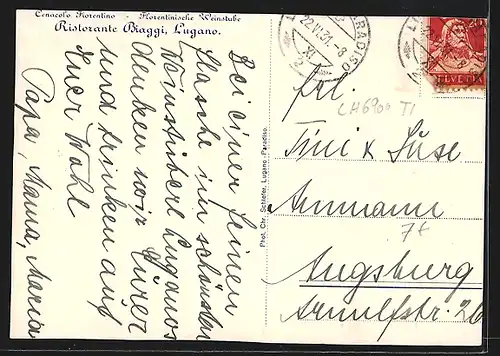 Cenacolo Fiorentino - Florentinische Weinstube
Ristorante Biaggi, Lugano.
Bei einer feinen
Flasche im schönsten
Weinstüberl Luganos
denken wir Eurer
und trinken auf
Euer Wohl
Papa, Mama, Maria
Phot. Chr. Schiefer, Lugano-Paradiso.
PARADISO
22.VI.31.-8
XI
2
HELVETIA
20
Frl.
CH6900 TI
Tini & Suse
Ammann
7f
Augsburg
Arnulfstr. 26